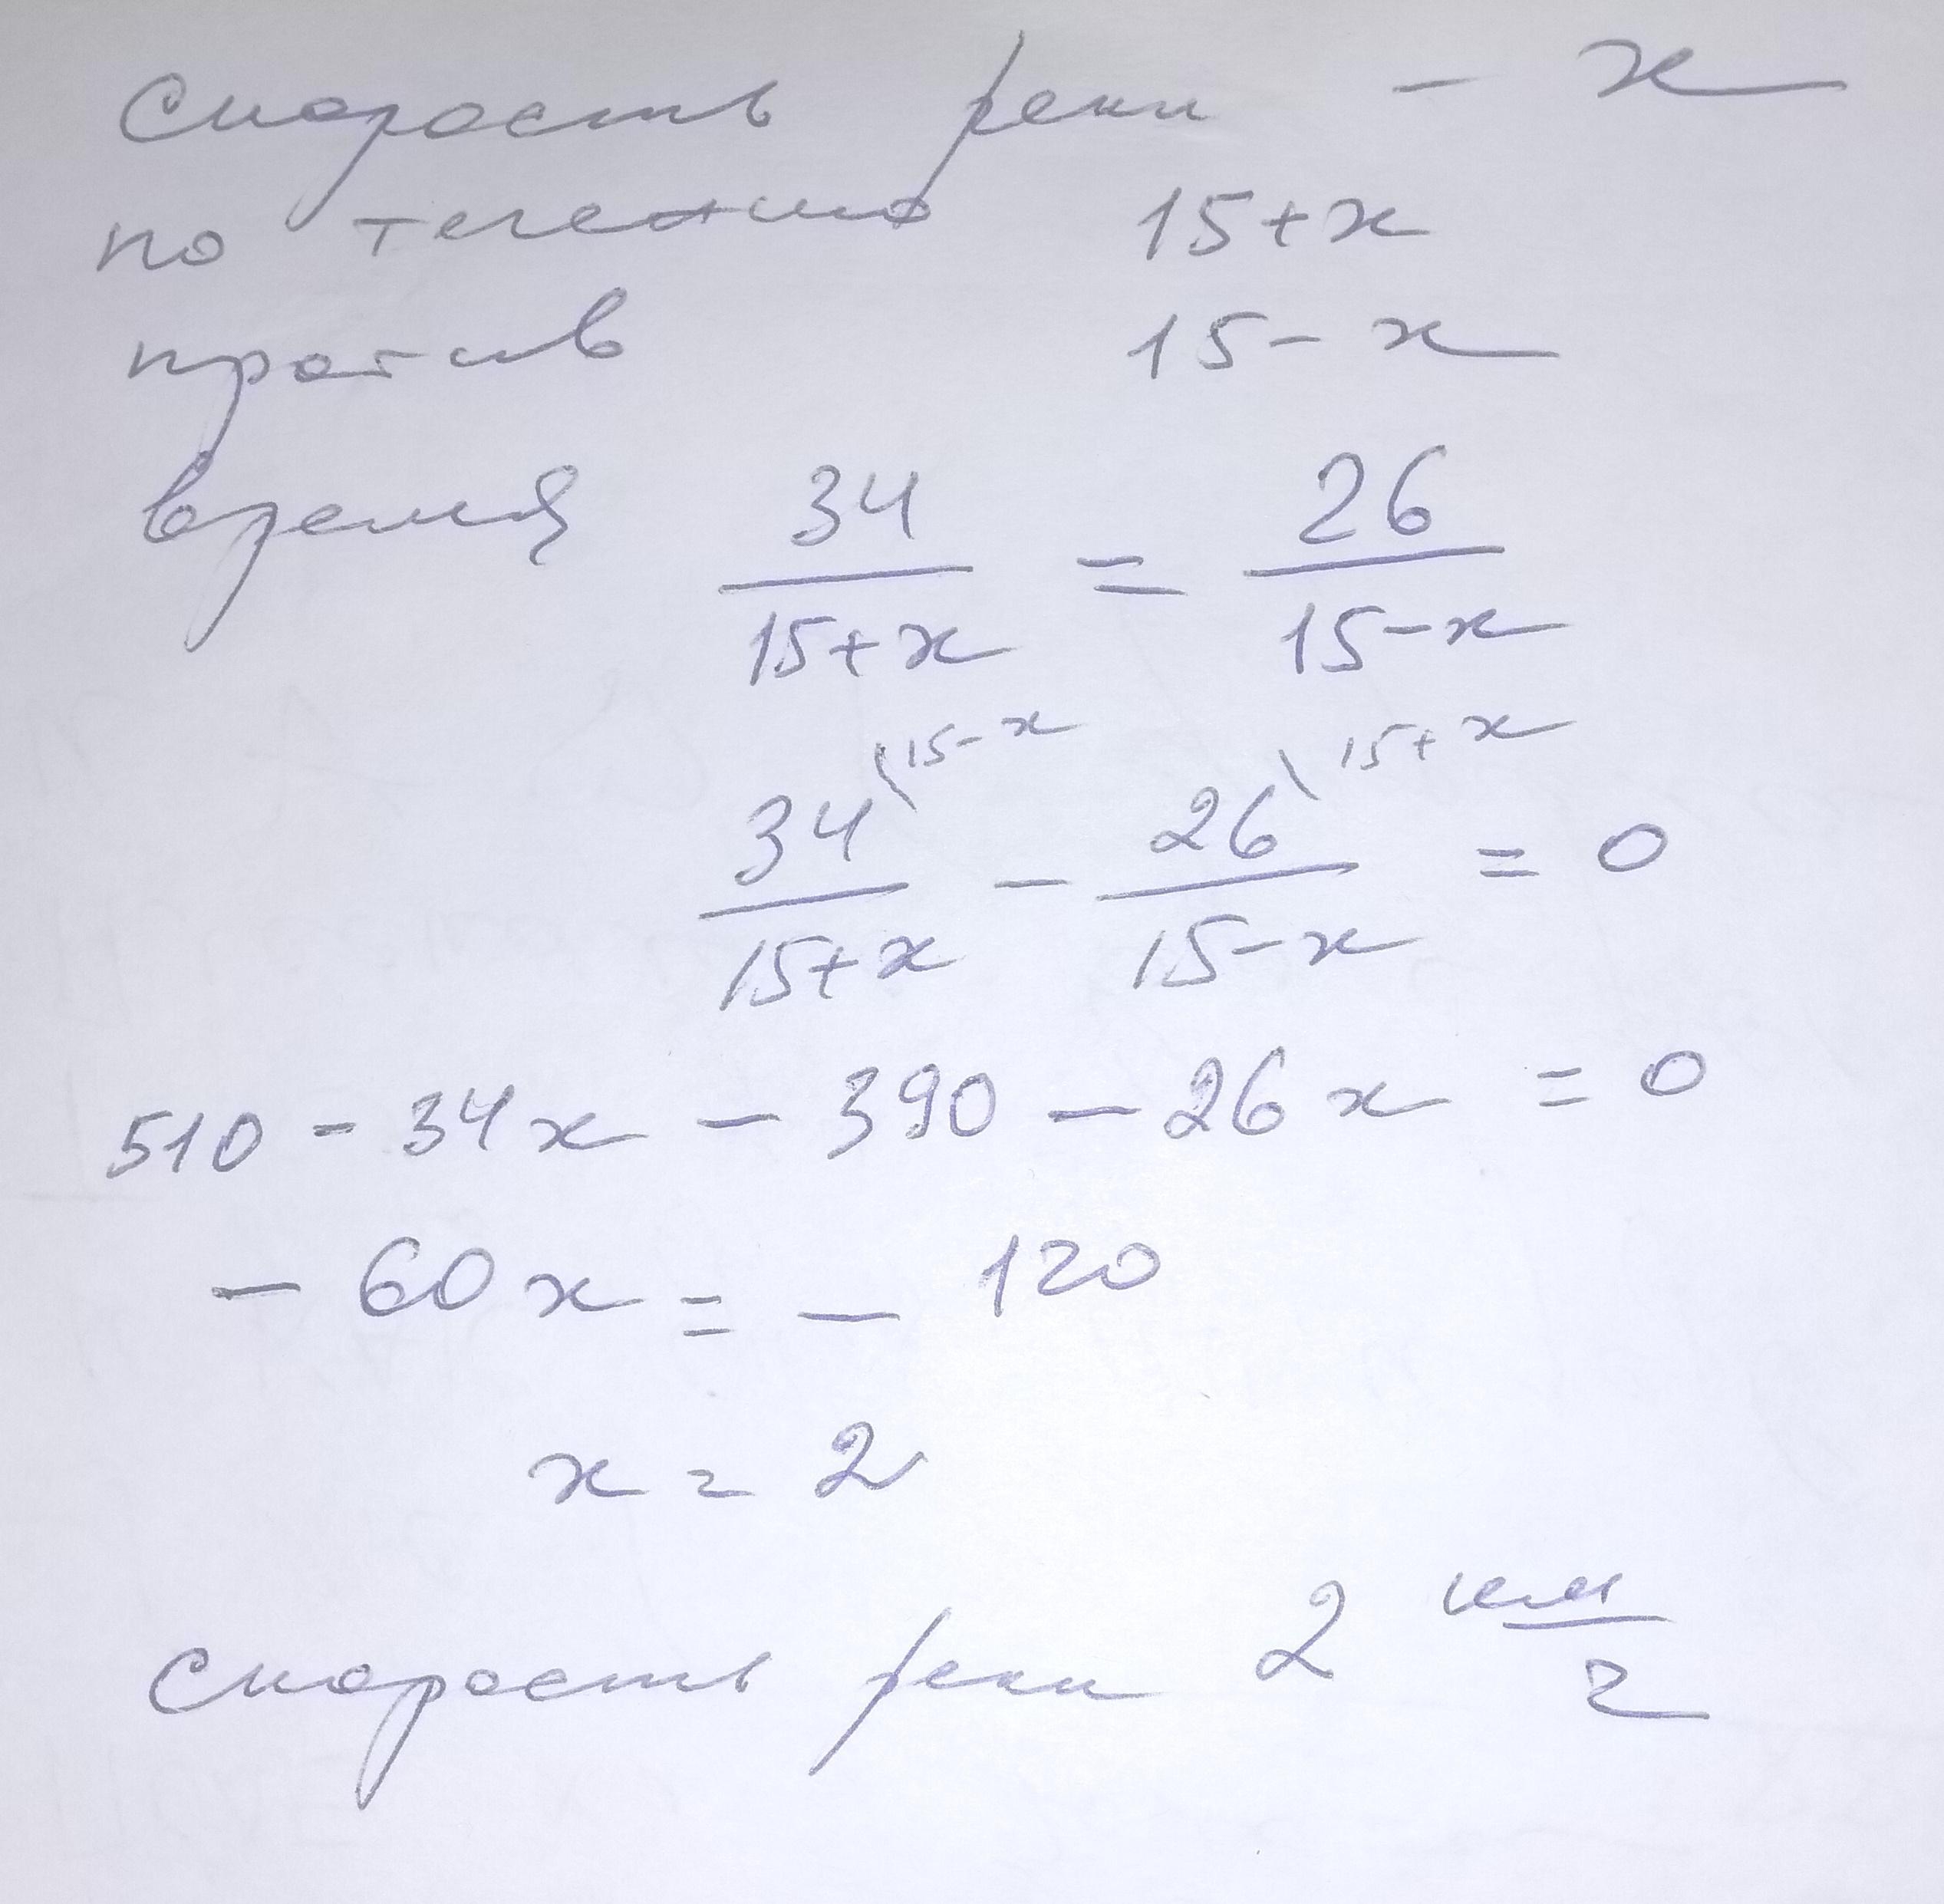 Скорость реки - x
по течению 15+x
против 15-x
время 34/15+x = 26/15-x
34\15-x/15+x - 26\15+x/15-x = 0
510 - 34x - 390 - 26x = 0
- 60x = - 120
x = 2
Скорость реки 2 км/ч